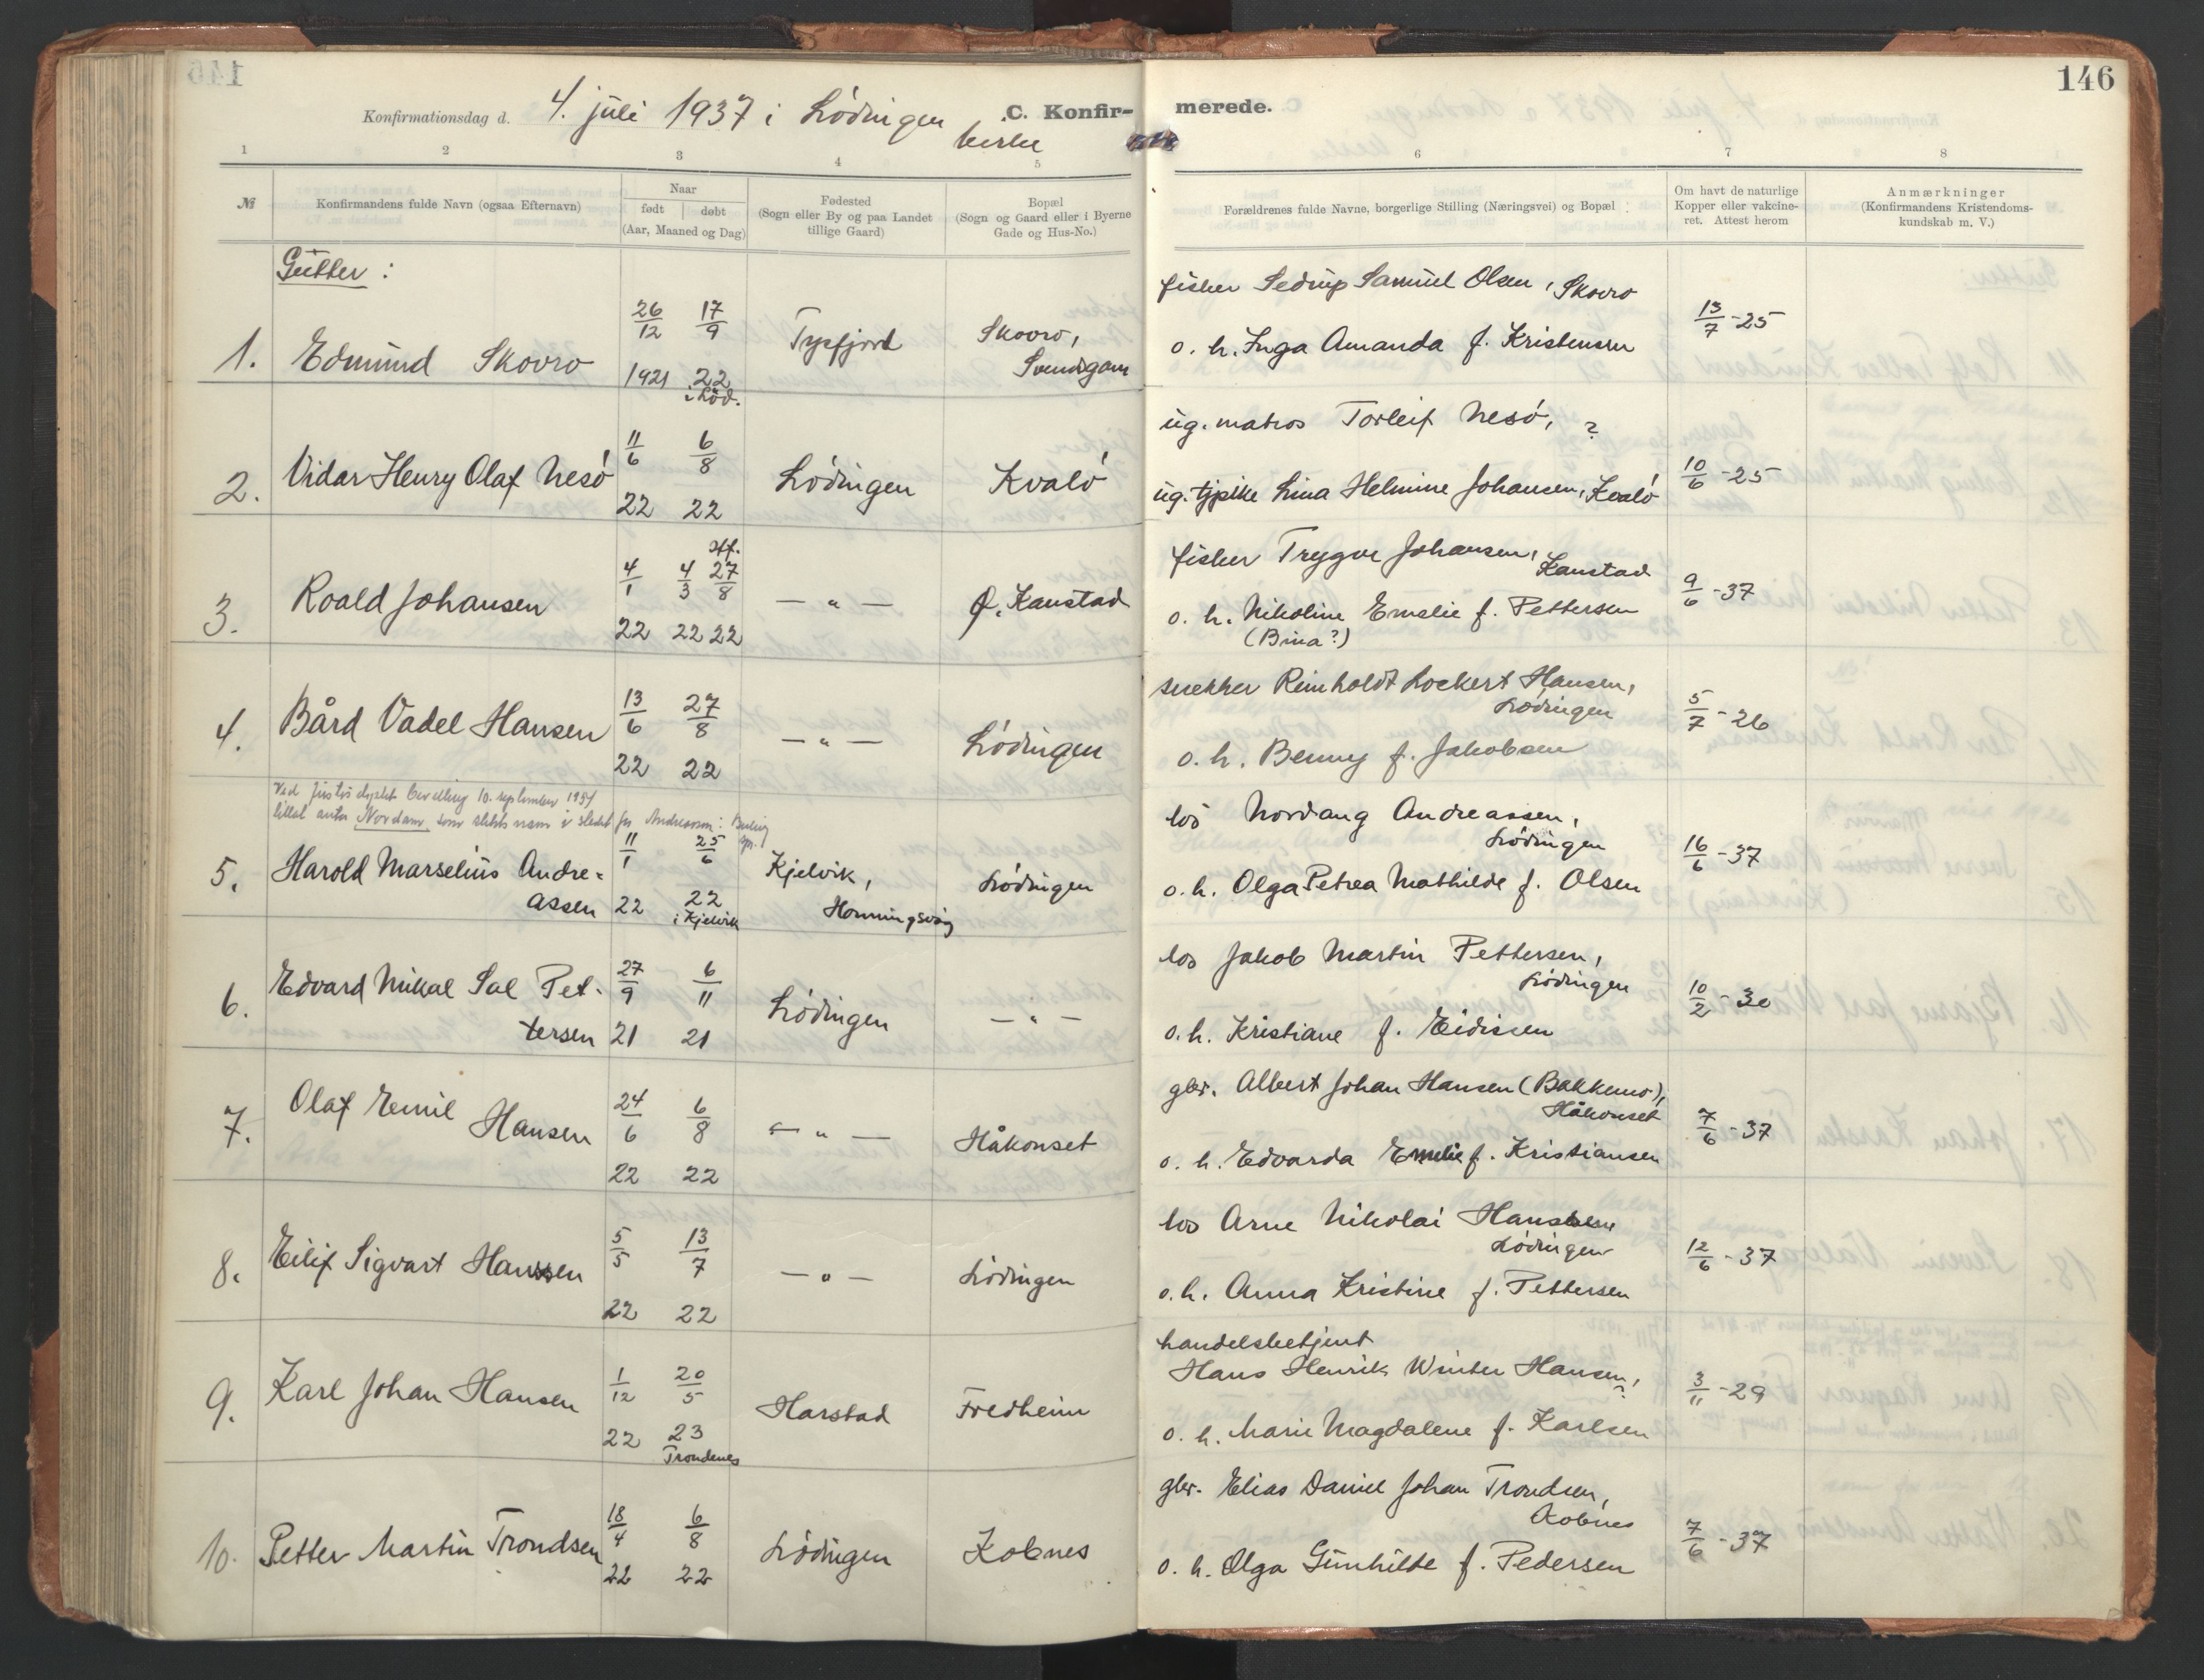 146
Konfirmationsdag d. 4. juli 1937 i Lødingen kirke
C. Konfir-
merede.
1 2 3 4 5 6 7 8
№
Konfirmandens fulde Navn (ogsaa Efternavn)
Naar
født døbt
(Aar, Maaned og Dag)
Fødested
(Sogn eller By og paa Landet
tillige Gaard)
Bopæl
(Sogn og Gaard eller i Byerne
Gade og Hus-No.)
Forældrenes fulde Navne, borgerlige Stilling (Næringsvei) og Bopæl
Om havt de naturlige
Kopper eller vakcine-
ret. Attest herom
Anmærkninger
(Konfirmandens Kristendoms-
kundskab m. V.)
Gutter :
1. Edmund Skovro
26/12 1921
17/9 22
i Lød.
Tysfjord
Skovro,
fisker Sedrup Samuel Olsen, Skovro
o. h. Inga Amanda f. Kristensen
13/7 - 25
2. Vidar Henry Olaf Nesö
11/6 22
6/8 22
Lödingen
Kvalö
ug. matros Torleif Nesö, ?
ug. tjpike Lina Helmine Johansen, Kvalö
10/6 - 25
3. Roald Johansen
4/1 22
4/3 22
27/8 22
— " —
Ø. Kanstad
fisker Trygve Johansen,
Kanstad
o. h. Nikoline Emelie f. Pettersen
(Bina?)
9/6 - 37
4. Bård Vadel Hansen
13/6 22
27/8 22
— " —
Lödingen
snekker Reinholdt Lockert Hansen,
Lödingen
o. h. Benny f. Jakobsen
5/7 - 26
Ved Justisdept. bevilling 10. september 1951
tillat anta Nordam som slektsnavn i stedet for Andreassen:
5. Harold Marselius Andre=
assen
11/1 22
25/6 22
i Kjelvik
Kjelvik,
Honningsvåg
Lödingen
los Nordang Andreassen,
Lödingen
o. h. Olga Petrea Mathilde f. Olsen
16/6 - 37
6. Edvard Mikal Sal Pet-
tersen
27/9 21
6/11 21
Lödingen
— " —
los Jakob Martin Pettersen,
Lödingen
o. h. Kristiane f. Eidissen
10/2 - 30
7. Olaf Emil Hansen
24/6 22
6/8 22
— " —
Håkonset
gbr. Albert Johan Hansen (Bakkemo),
Håkonset
o. h. Edvarda Emelie f. Kristiansen
7/6 - 37
8. Eilif Sigvart Hanssen
5/5 22
13/7 22
— " —
Lödingen
los Arne Nikolai Hanssen
Lödingen
o. h. Anna Kristine f. Pettersen
12/6 - 37
9. Karl Johan Hansen
1/12 22
20/5 23
Trondenes
Harstad
Fredheim
handelsbetjent
Hans Henrik Winter Hansen, ?
o. h. Marie Magdalene f. Karlsen
3/11 - 29
10. Petter Martin Trondsen
18/4 22
6/8 22
Lödingen
Kobnes
gbr. Elias Daniel Johan Trondsen,
Kobnes
o. h. Olga Gunhilde f. Pedersen
7/6 - 37